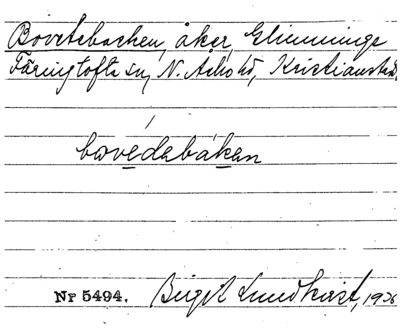 Bovetebacken, åker, Glimminge
Färingtofta sn, N. Åsbo hd, Kristianstad.
bovedabákan
Nr 5494. Birgit Lundkvist, 1936